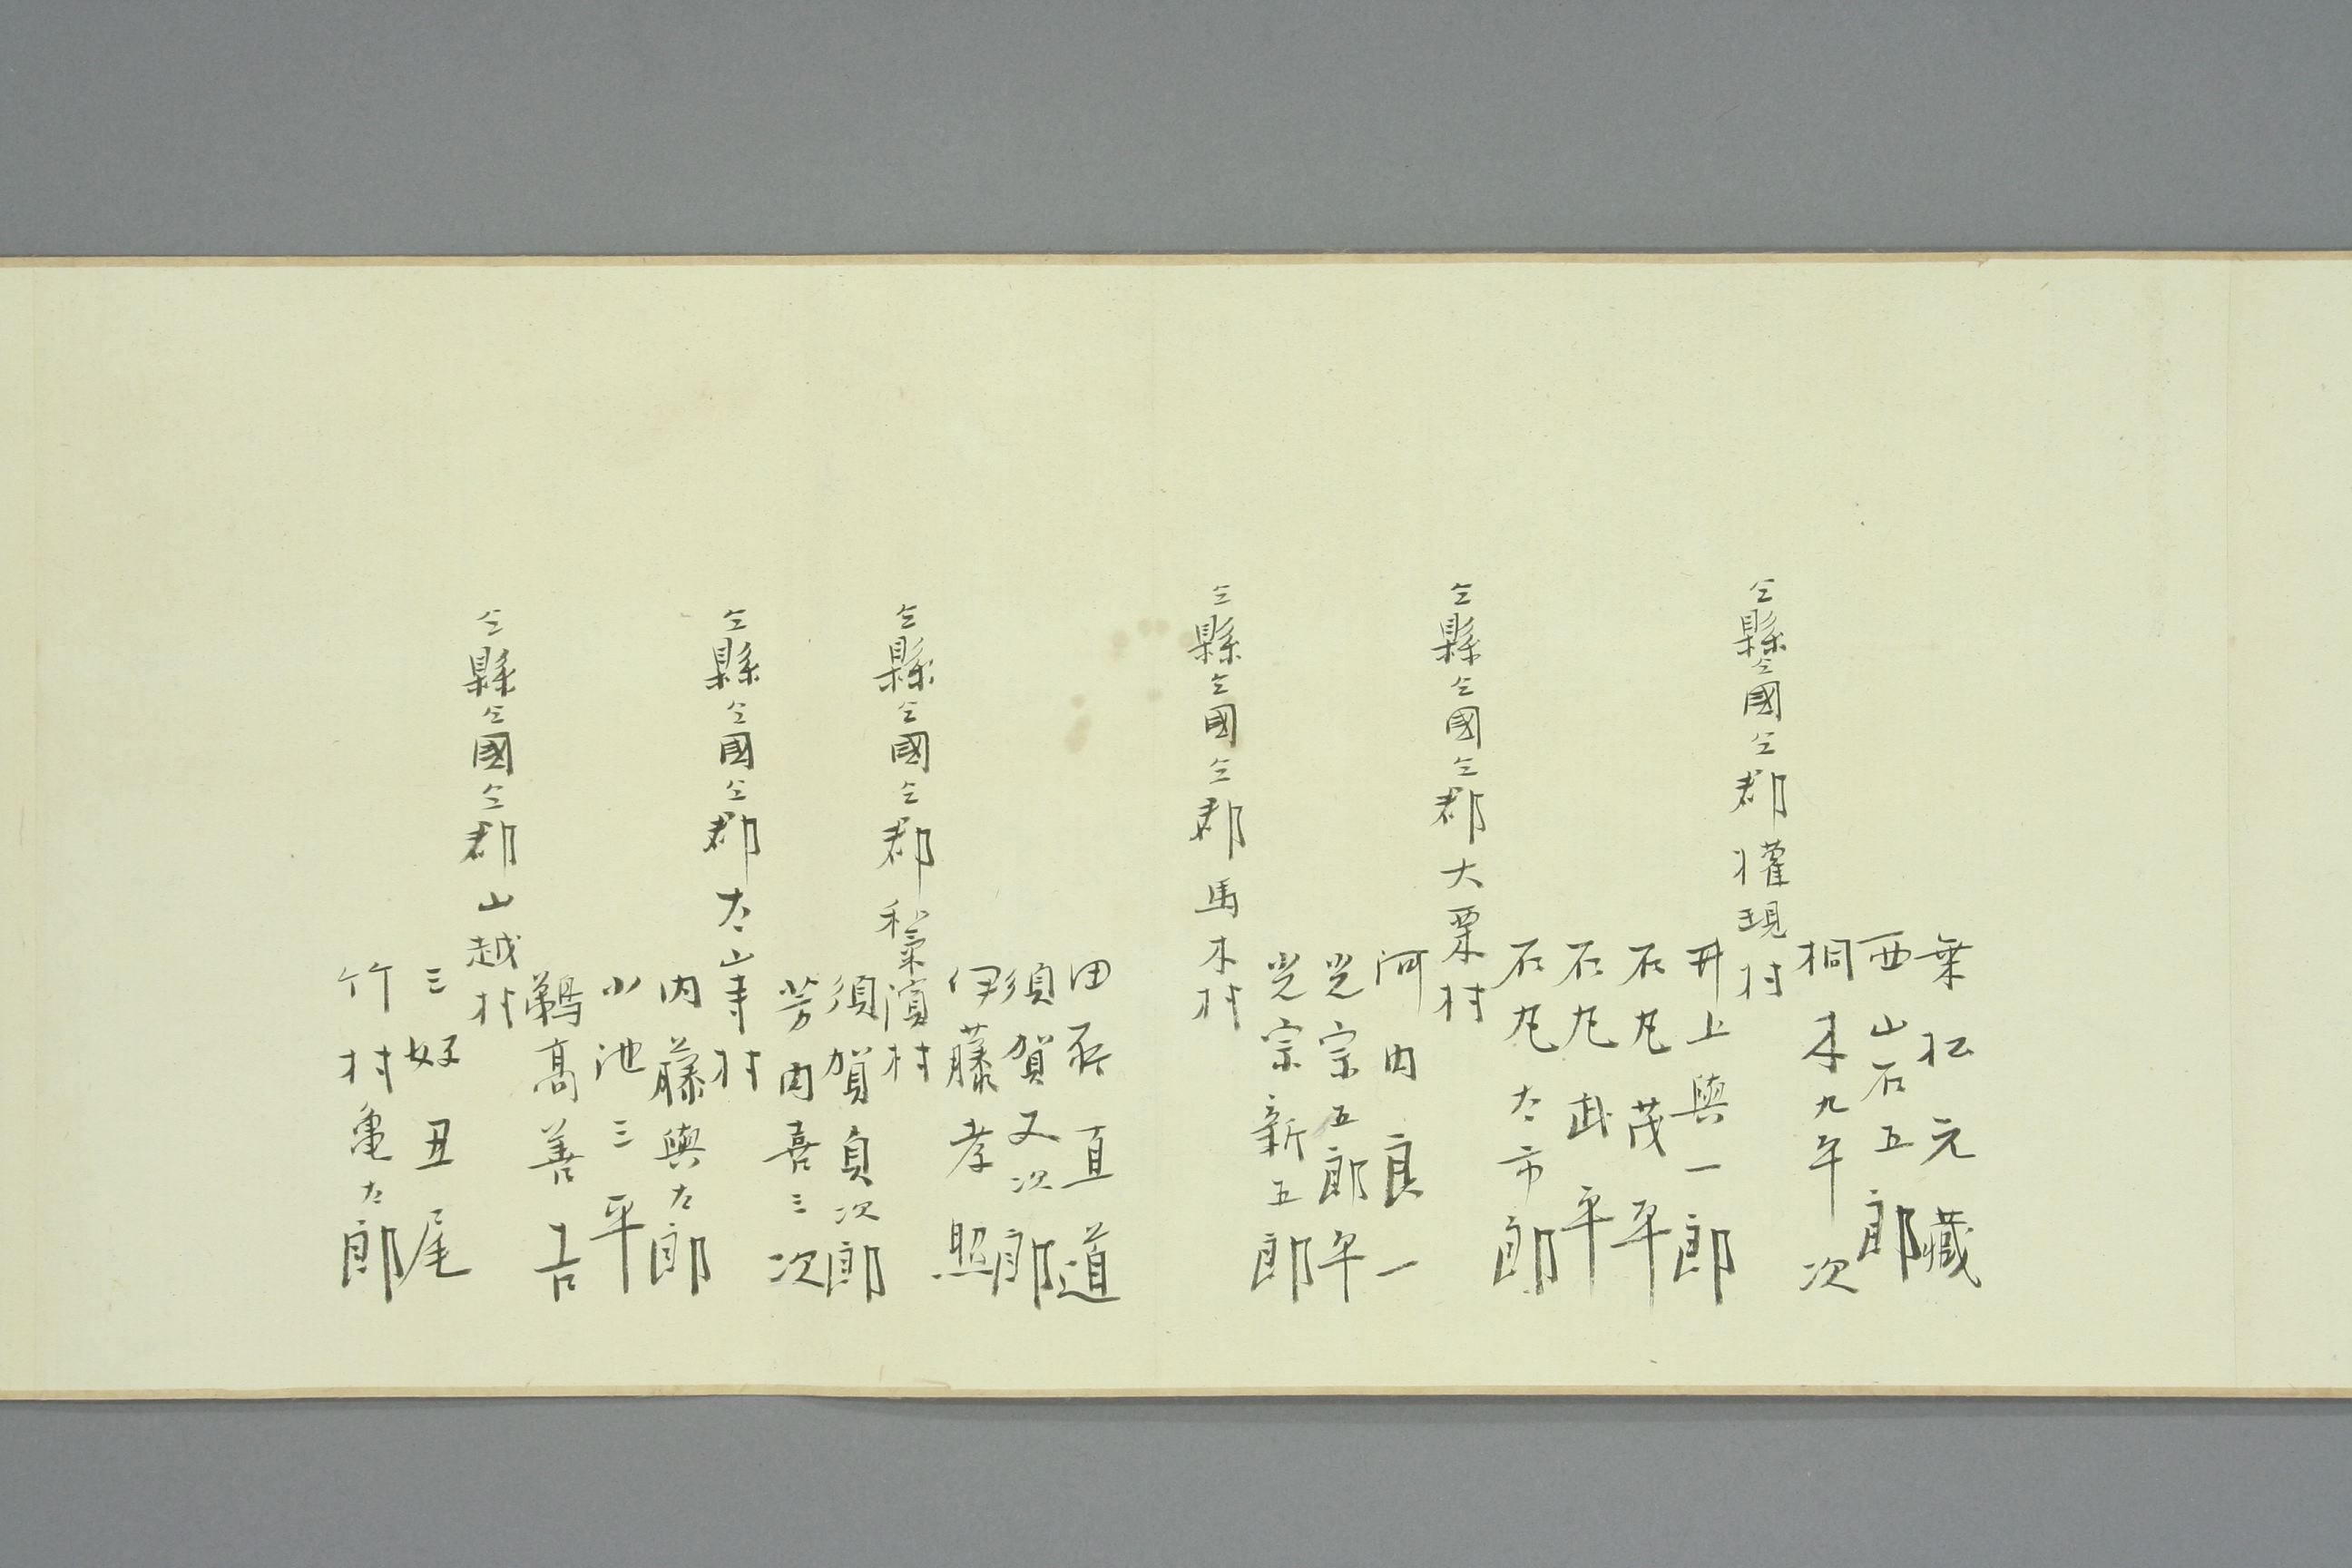 乗松元藏
西山石五郎
桐木九年次
仝縣仝國仝郡權現村
井上與一郎
石丸茂平
石丸武平
石丸太市郎
仝縣仝國仝郡大栗村
河内良一
光宗五郎平
光宗新五郎
仝縣仝國仝郡馬木村
田所直道
須賀又次郎
伊藤孝照
仝縣仝國仝郡和氣濱村
須賀貞次郎
芳内喜三次
仝縣仝國仝郡太山寺村
内藤與太郎
小池三平
鵜高善吾
仝縣仝國仝郡山越村
三好丑尾
竹村亀太郎